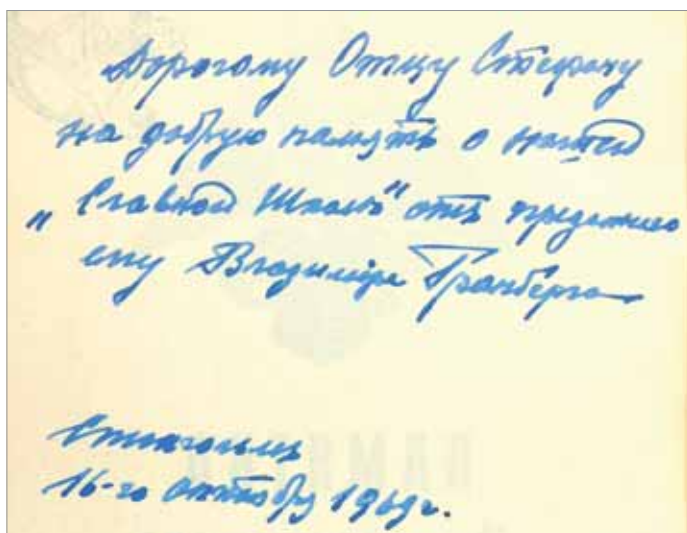 Дорогому Отцу Стефану
на добрую память о нашей
„Славной Школѣ" отъ преданнаго
ему Владиміра Гранберга
Стокгольмъ
16-го октября 1969г.